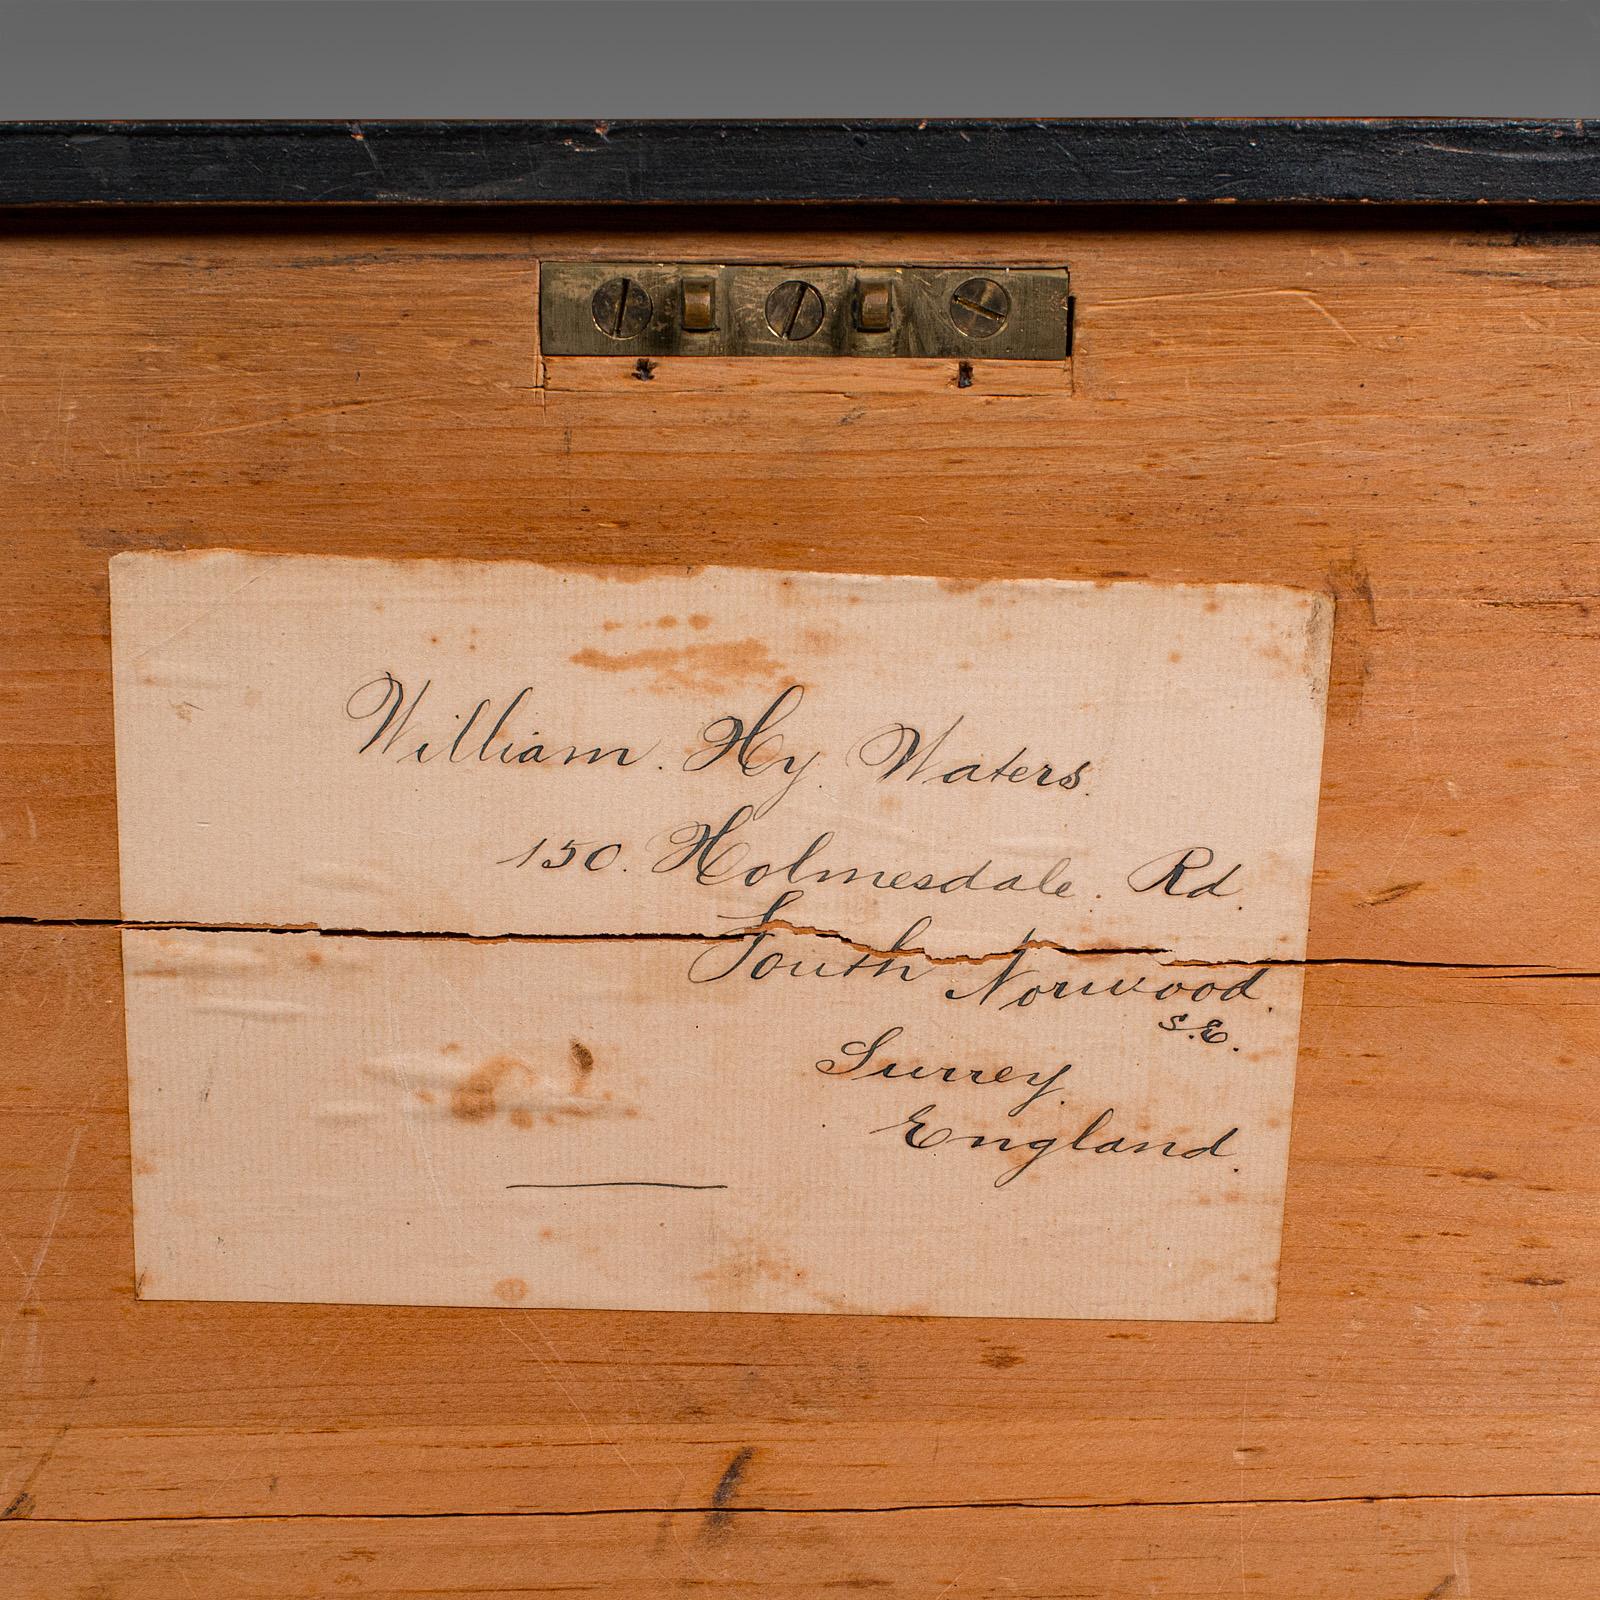 William. Hy. Waters.
150. Holmesdale. Rd.
South Norwood.
S.E.
Surrey.
England.